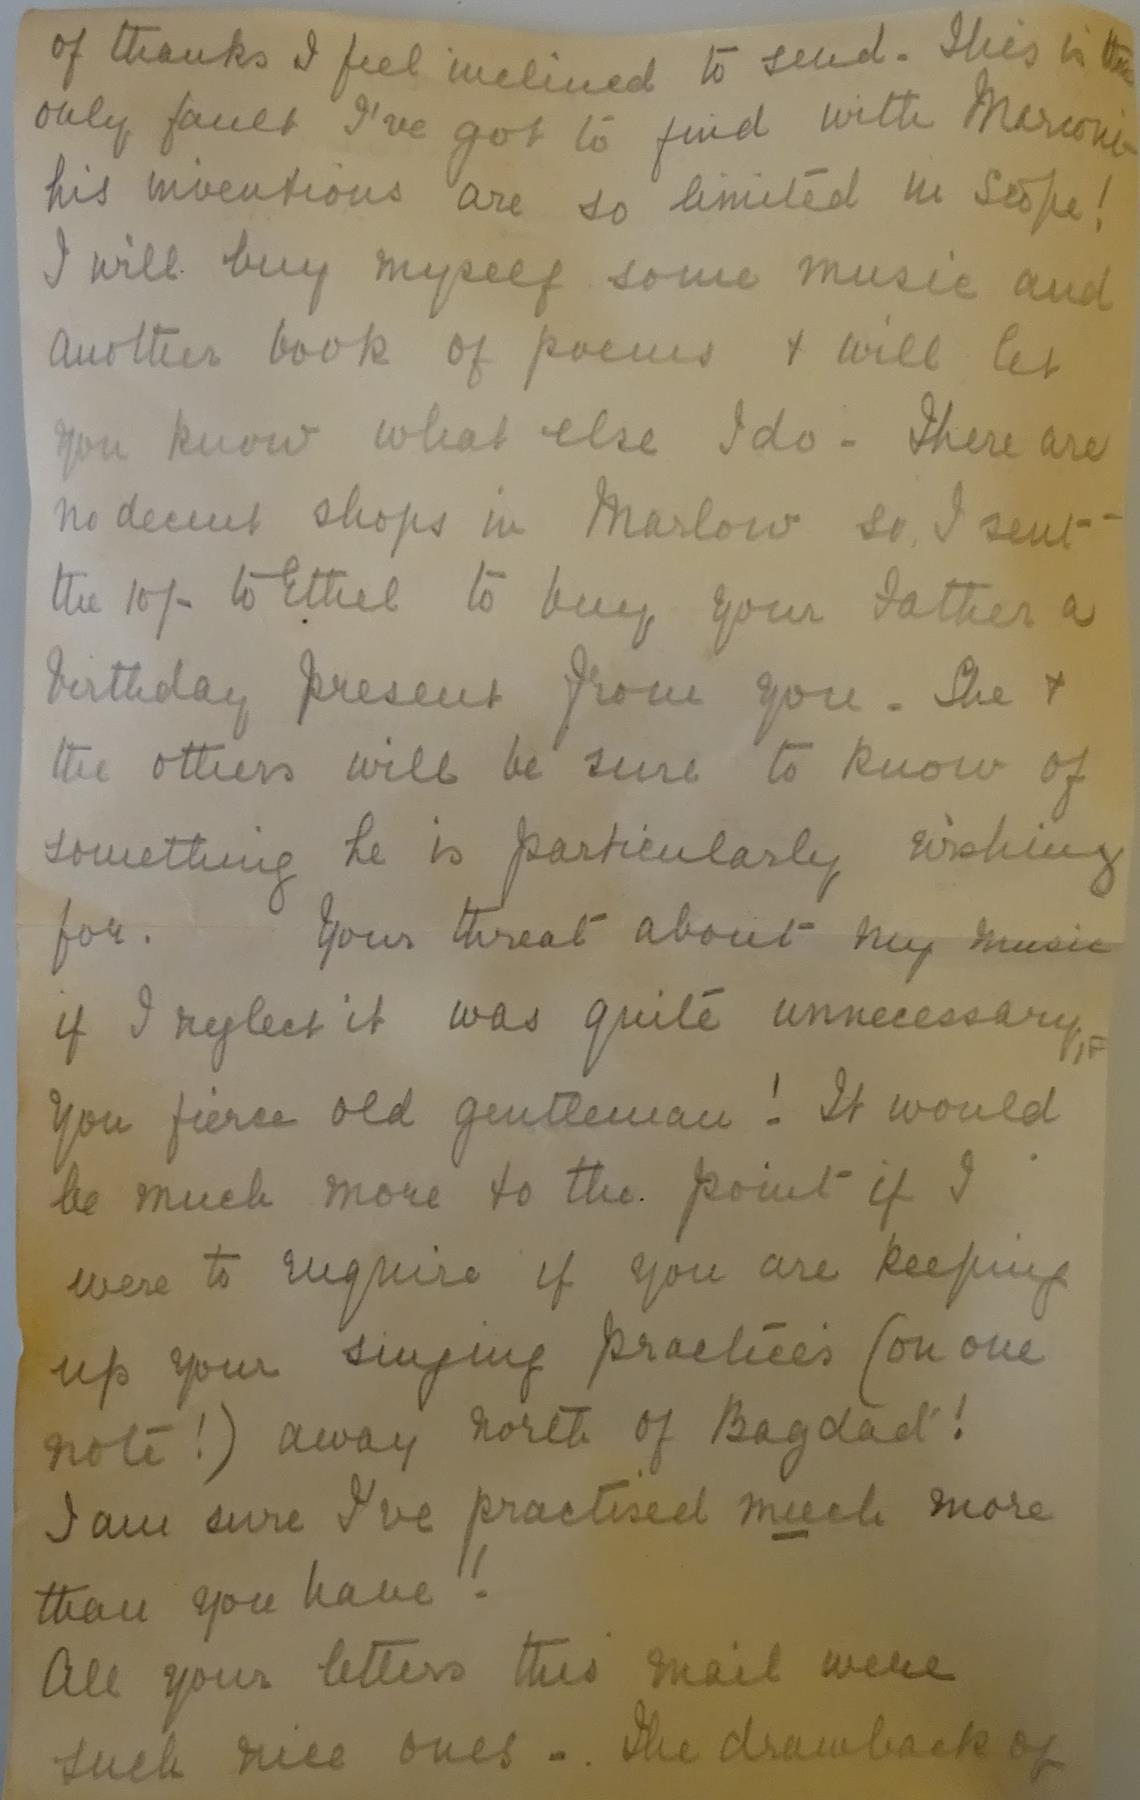 of thanks I feel inclined to send - This is the
only fault I've got to find with Marconi -
his inventions are so limited in scope!
I will buy myself some music and
another book of poems + will let
you know what else I do - There are
no decent shops in Marlow so I sent
the 10/- to Ethel to buy your Father a
birthday present from you - She +
the others will be sure to know of
something he is particularly wishing
for. Your threat about my music
if I neglect it was quite unnecessary,
you fierce old gentleman! It would
be much more to the point if I
were to enquire if you are keeping
up your singing practices (on one
note!) away north of Bagdad!
I am sure I've practised much more
than you have!
All your letters this mail were
such nice ones - The drawback of